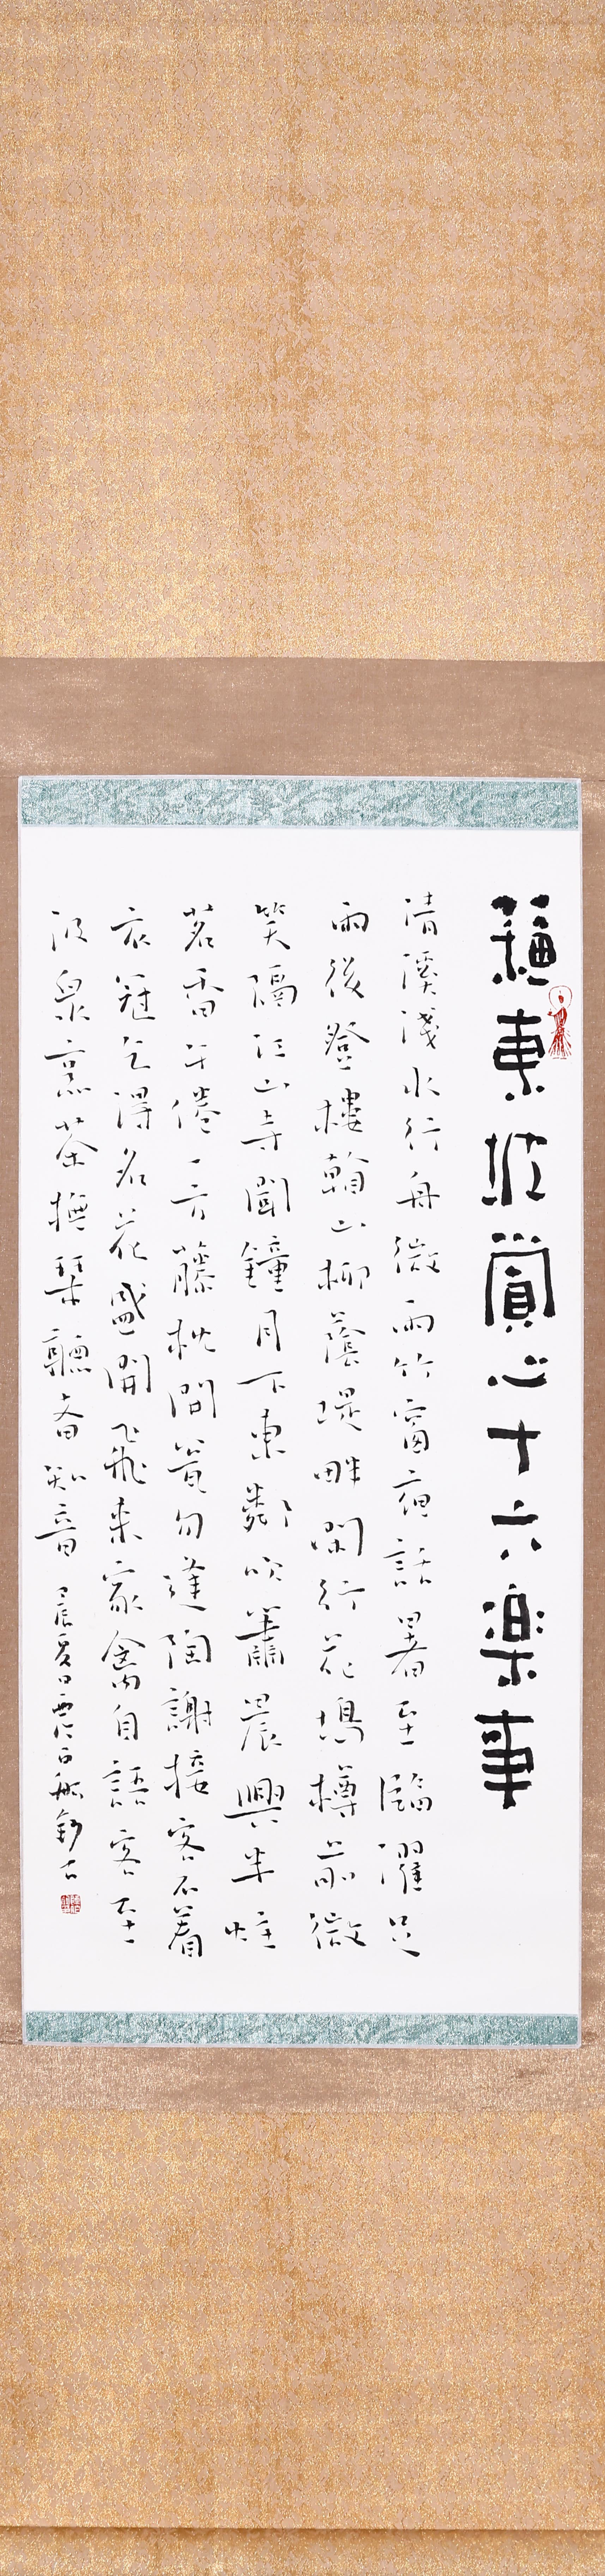 蘇東坡賞心十六樂事
清溪淺水行舟微雨竹窗夜話暑至臨溪濯足
雨後登樓看山柳蔭堤畔閑行花塢樽前微
笑隔江山寺聞鐘月下東鄰吹簫晨興半炷
茗香午倦一方藤枕開甕勿逢陶謝接客不着
衣冠乞得名花盛開飛來家禽自語客至
汲泉烹茶撫琹聽者知音